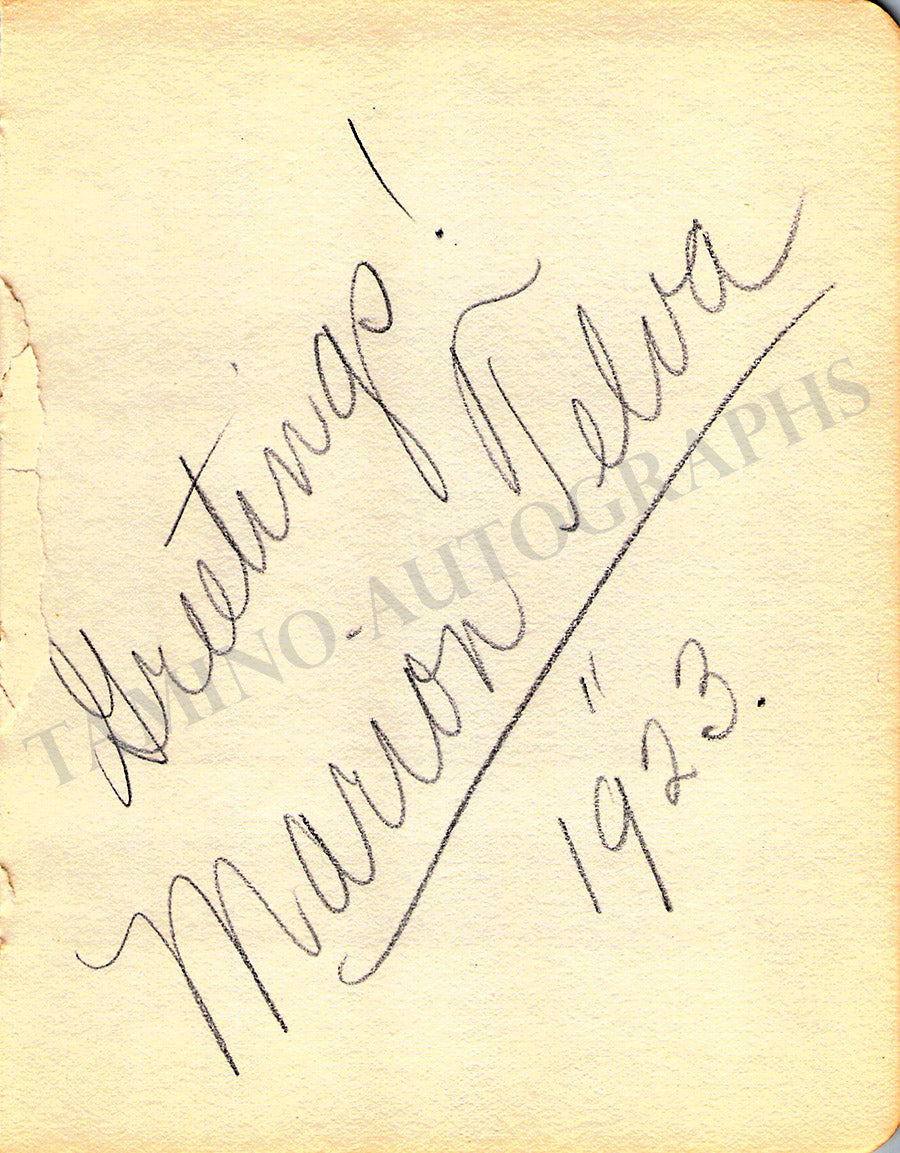 Greetings!
Marion Telva
" 1923.
TAMINO-AUTOGRAPHS